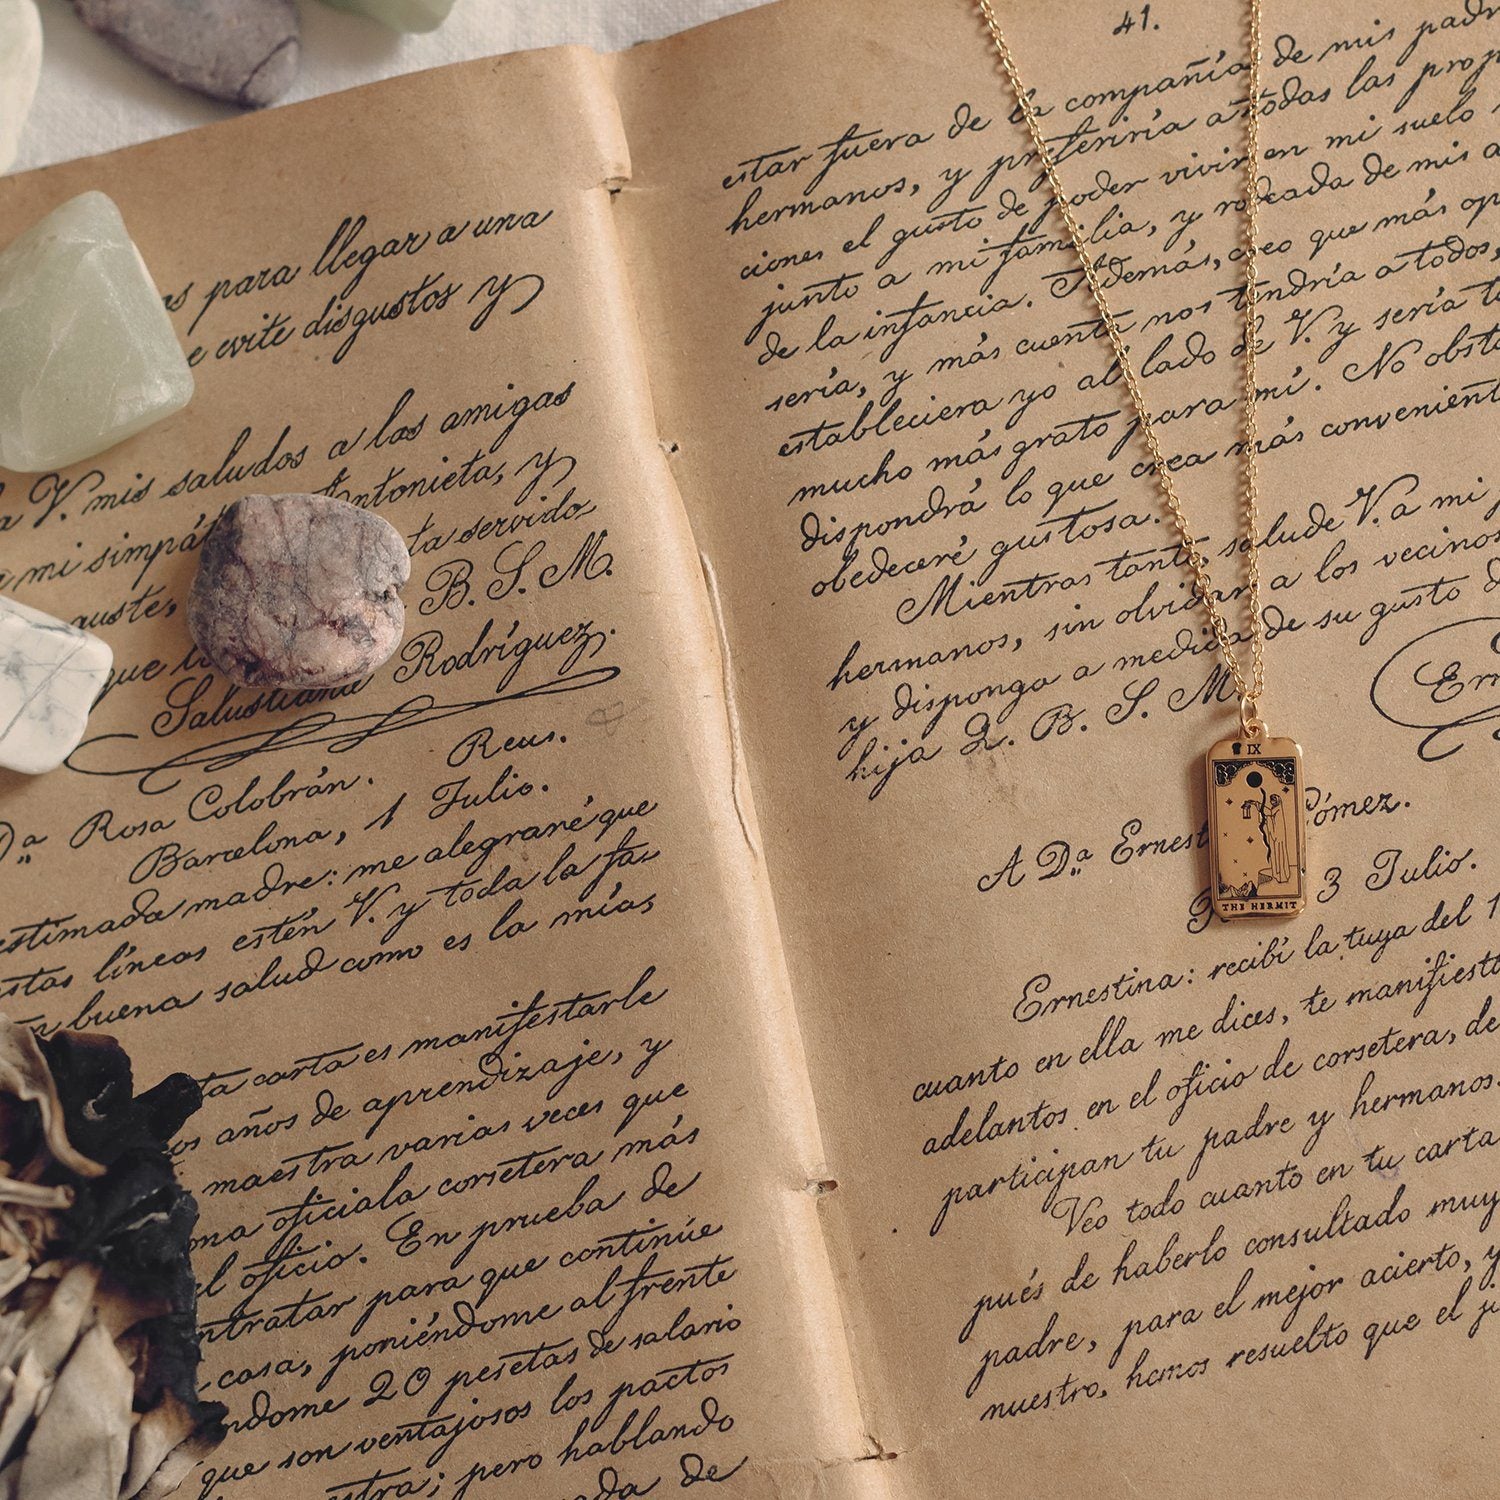 para llegar a una
evite disgustos y
V. mis saludos a las amigas
mi simpát Antonieta, y
servido
B. S. M.
Salustiana Rodríguez.
Dª Rosa Colobrán. Reus.
Barcelona, 1 Julio.
estimada madre: me alegraré que
estas líneas estén V. y toda la fa-
buena salud como es la mías
ta carta es manifestarle
os años de aprendizaje, y
maestra varias veces que
oficiala corsetera más
el oficio. En prueba de
ntratar para que continúe
casa, poniéndome al frente
ndome 20 pesetas de salario
que son ventajosos los pactos
stra; pero hablando
ada de
41.
estar fuera de la compañía de mis padr
hermanos, y preferiría a todas las prop
ciones el gusto de poder vivir en mi suelo
junto a mi familia, y rodeada de mis a
de la infancia. Además, creo que más op
sería, y más cuenta nos tendría a todos,
estableciera yo al lado de V. y sería
mucho más grato para mí. No obst
dispondrá lo que crea más convenient
obedeceré gustosa.
Mientras tanto, salude V. a mi
hermanos, sin olvidar a los vecinos
y disponga a medida de su gusto d
hija Q. B. S. M.
Ern
A Dª Ernest Gómez.
3 Julio.
Ernestina: recibí la tuya del 1
cuanto en ella me dices, te manifiesto
adelantos en el oficio de corsetera, de
participan tu padre y hermanos.
Veo todo cuanto en tu carta
pués de haberlo consultado muy
padre, para el mejor acierto, y
nuestro, hemos resuelto que el
IX
THE HERMIT